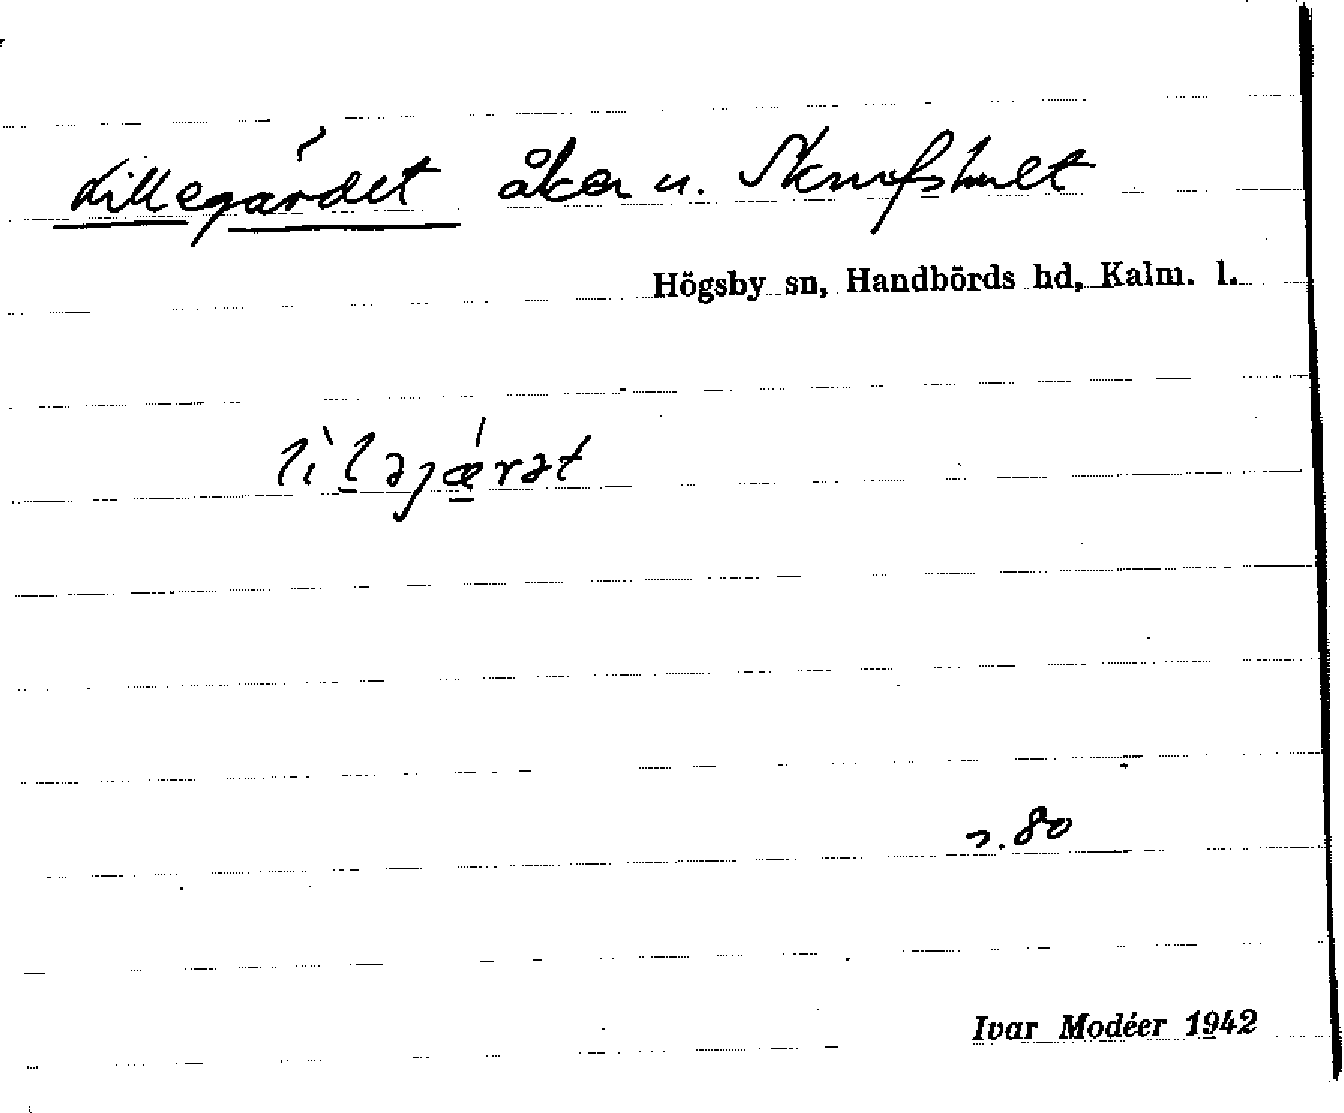 Lillegärdet åker u. Skrufshult
Högsby sn, Handbörds hd, Kalm. l.
lìlǝjǽrǝt
s. 80
Ivar Modéer 1942